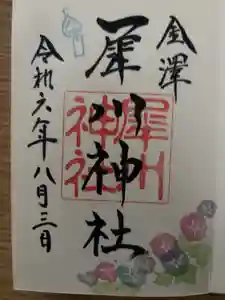 金澤
犀川神社
犀川神社
令和六年八月三日